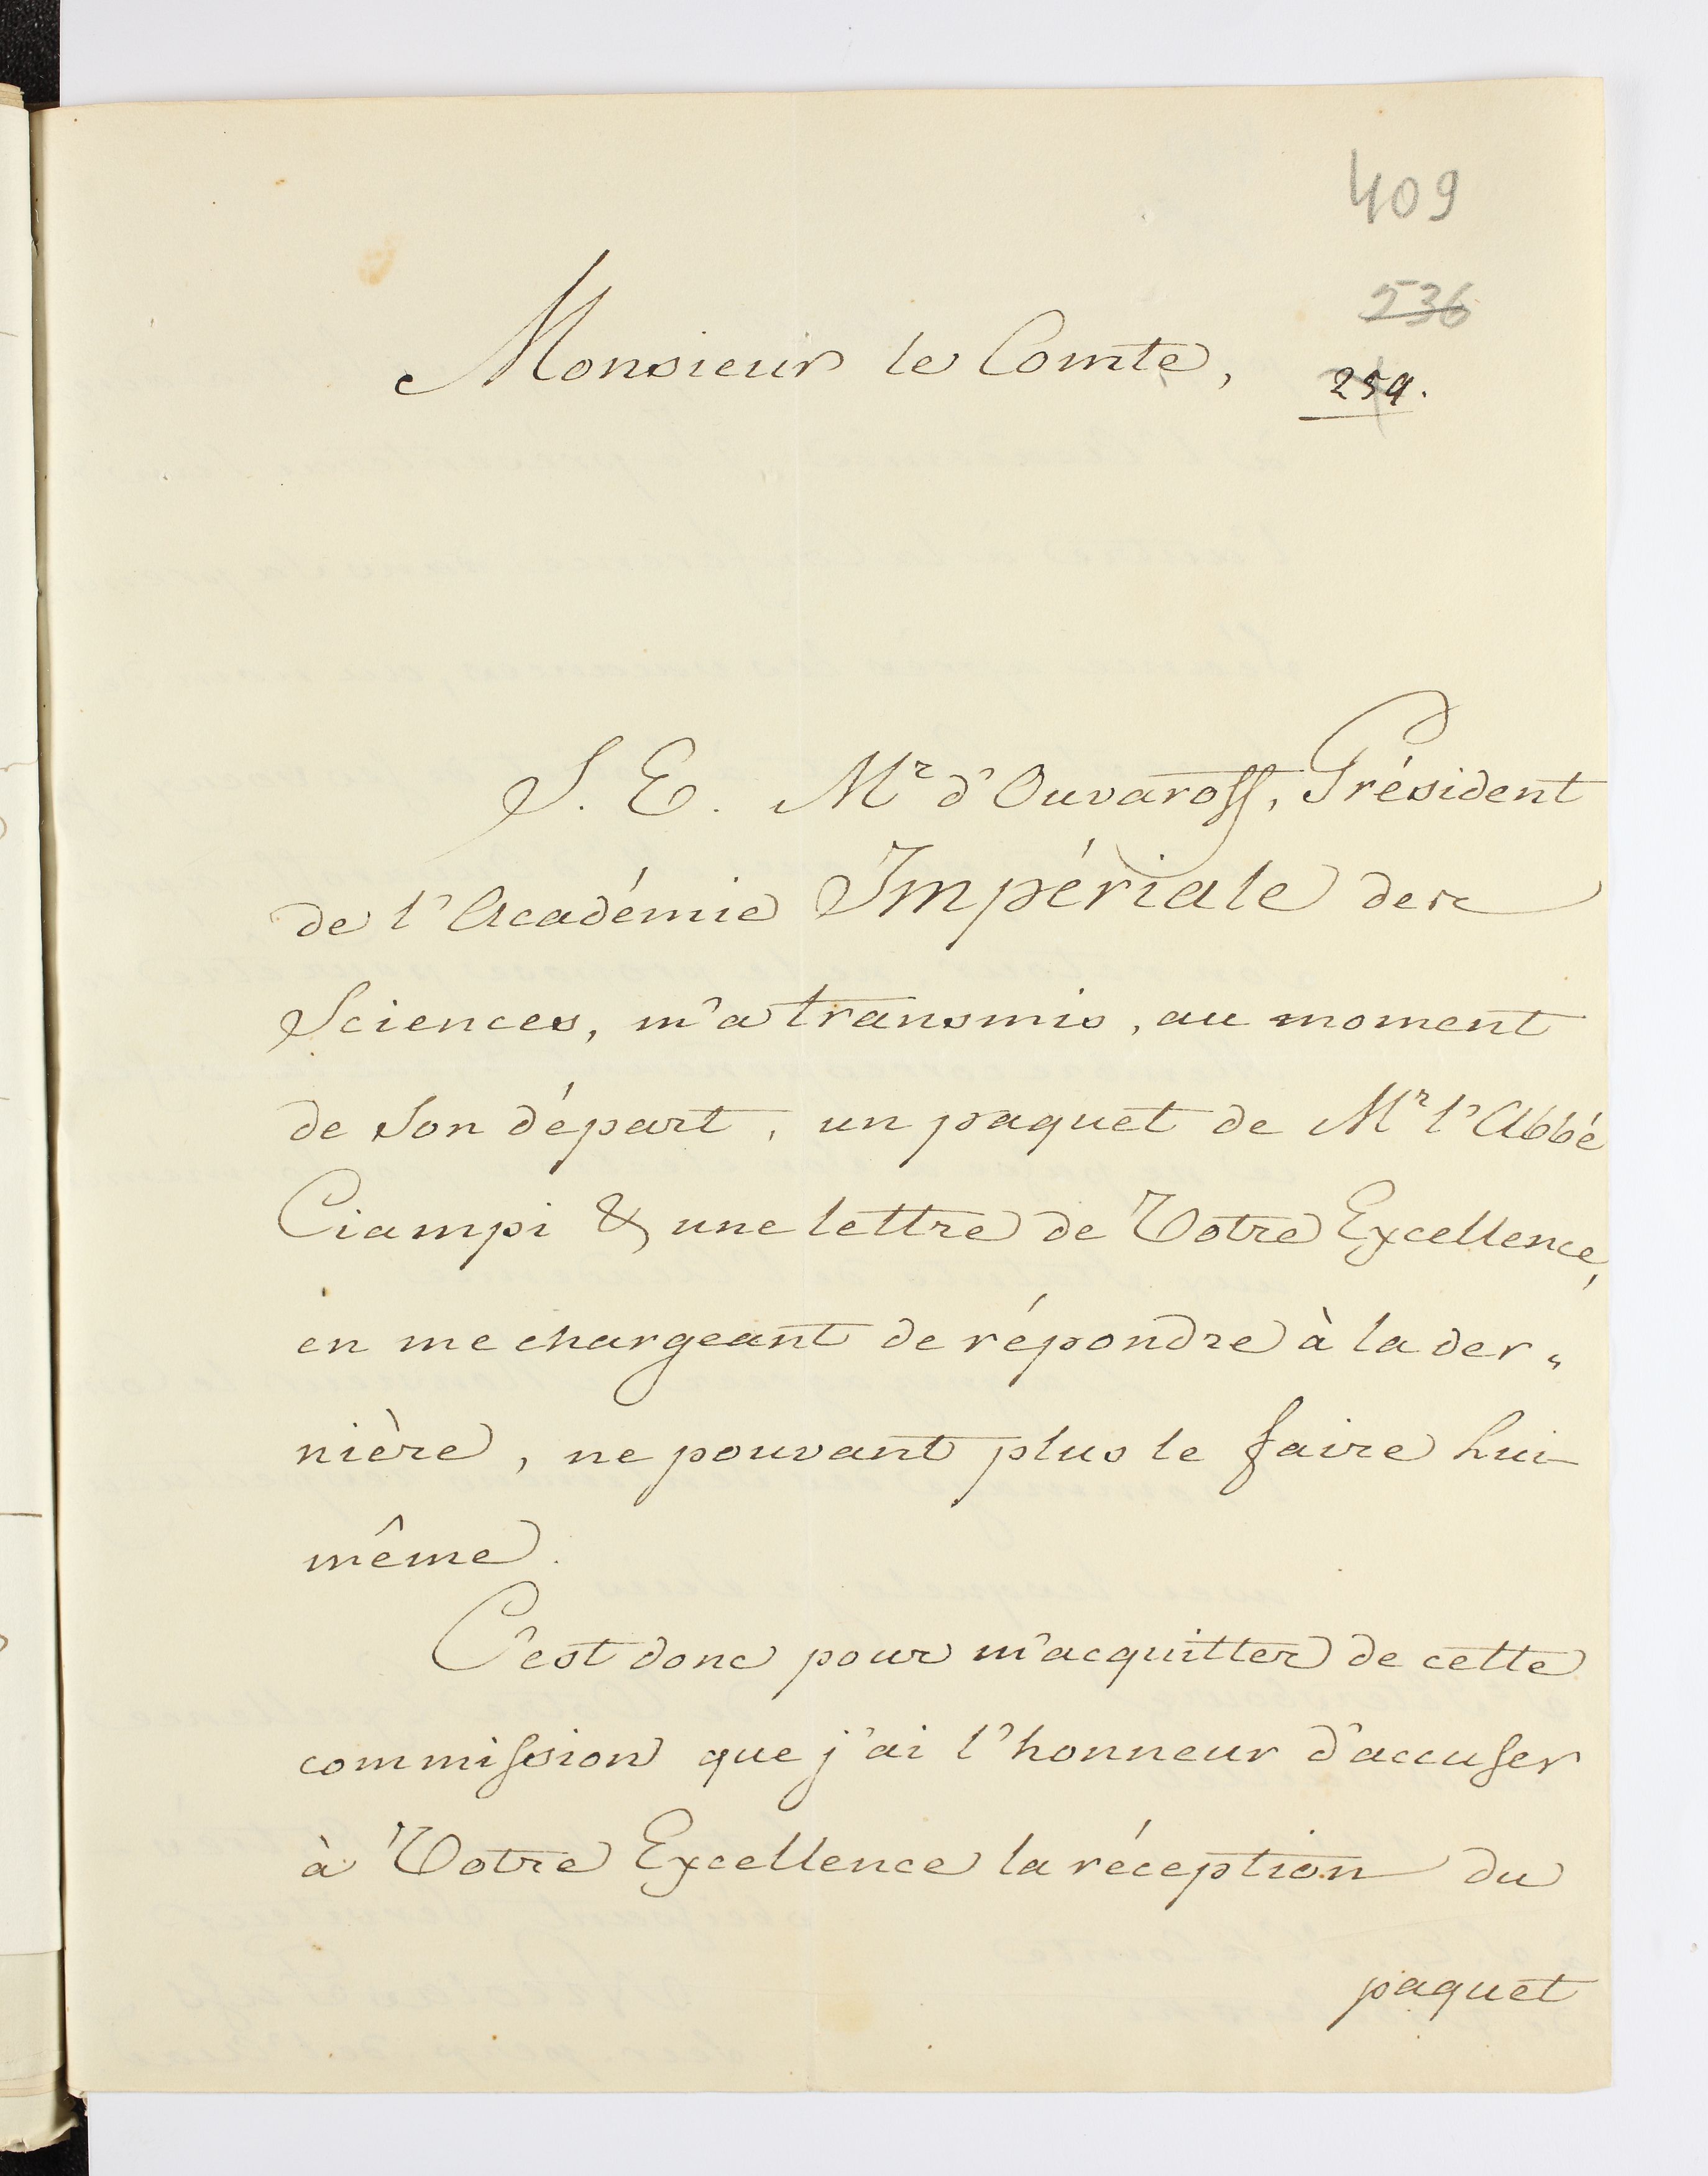 409
536
259.
Monsieur le Comte,
S. E. Mr d'Ouvaroff, Président
de l'Académie Impériale des
Sciences, m'a transmis, au moment
de Son départ, un paquet de Mr l'Abbé
Ciampi & une lettre de Votre Excellence,
en me chargeant de répondre à la der„
nière, ne pouvant plus le faire Lui-
même.
C'est donc pour m'acquitter de cette
commission que j'ai l'honneur d'accuser
à Votre Excellence la réception du
paquet